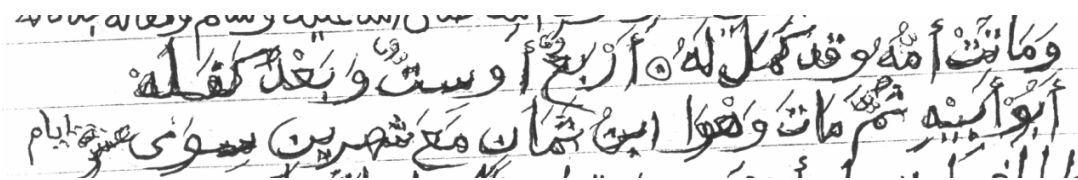 صلى الله عليه وسلم
وَمَاتَتْ أُمُّهُ وَقَدْ كَمُلَ لَهُ أَرْبَعٌ أَوْ سِتٌّ وَبَعْدُ كَفَلَهُ
أَبُو أَبِيهِ ثُمَّ مَاتَ وَهْوَا ابْنُ ثَمَانٍ مَعَ شَهْرَيْنِ سِوَى عشرة ايام